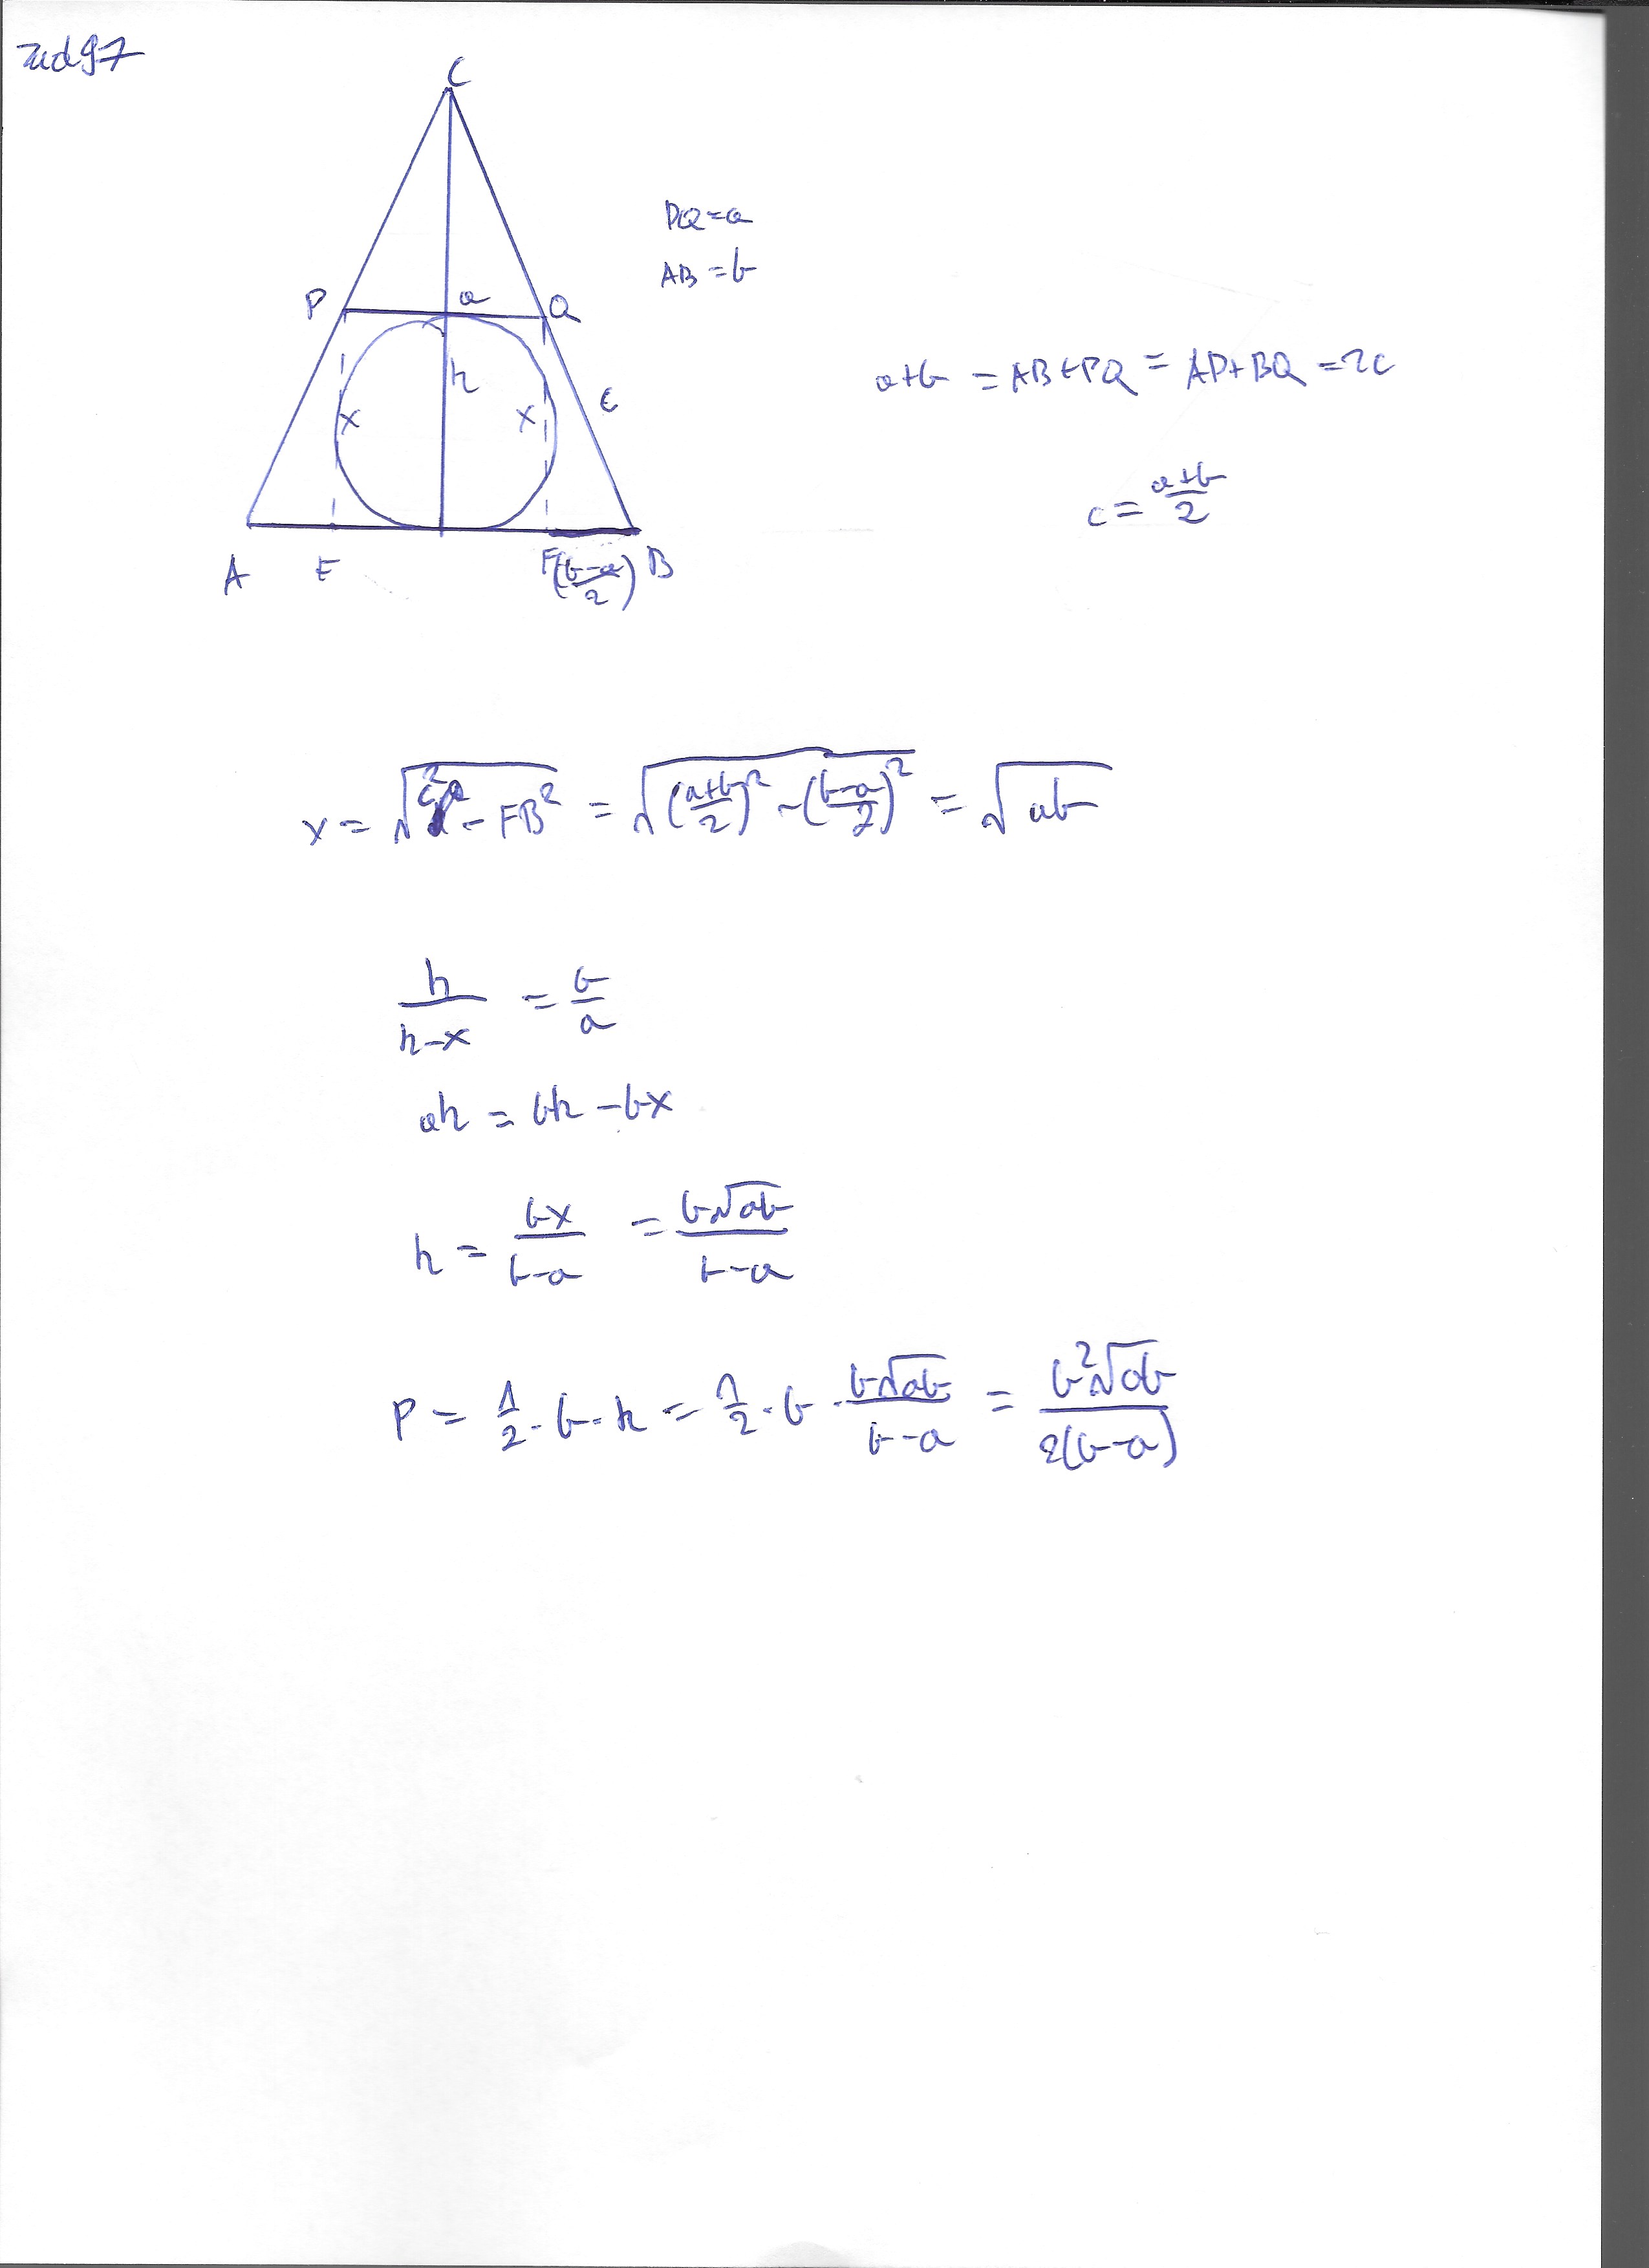 zad 97
C
PQ = a
AB = b
P a Q
h
x x c
a+b = AB+PQ = AP+BQ = 2c
c = \frac{a+b}{2}
A E F (\frac{b-a}{2}) B
x = \sqrt{c^2 - FB^2} = \sqrt{(\frac{a+b}{2})^2 - (\frac{b-a}{2})^2} = \sqrt{ab}
\frac{h}{h-x} = \frac{b}{a}
ah = bh - bx
h = \frac{bx}{b-a} = \frac{b\sqrt{ab}}{b-a}
P = \frac{1}{2} · b · h = \frac{1}{2} · b · \frac{b\sqrt{ab}}{b-a} = \frac{b^2\sqrt{ab}}{2(b-a)}